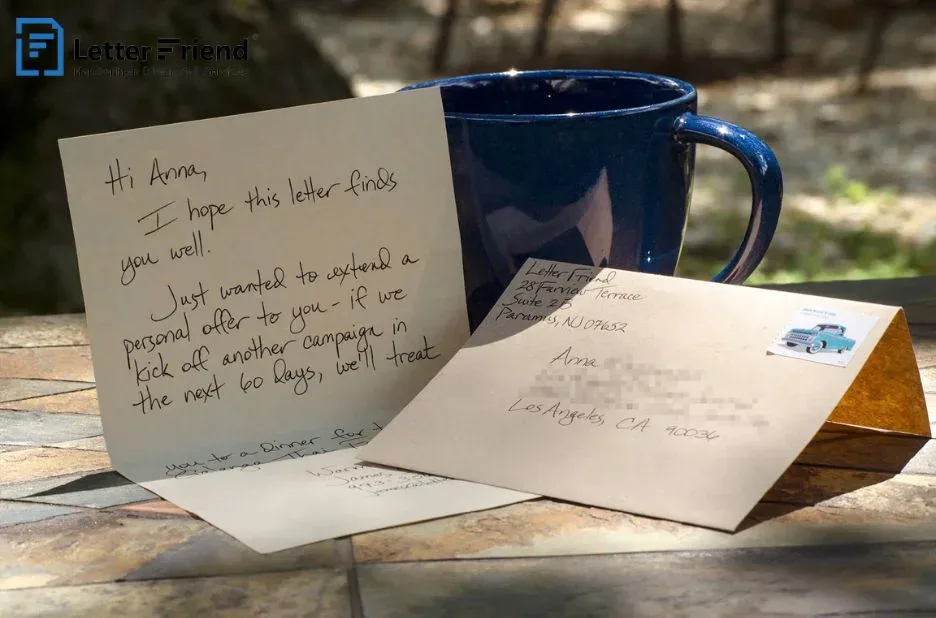 Letter Friend
Hi Anna,
I hope this letter finds
you well.
Just wanted to extend a
personal offer to you - if we
kick off another campaign in
the next 60 days, we'll treat
you to a Dinner for
James
973-3
Letter Friend
28 Farview Terrace
Suite 25
Paramus, NJ 07652
Anna
Los Angeles, CA 90036